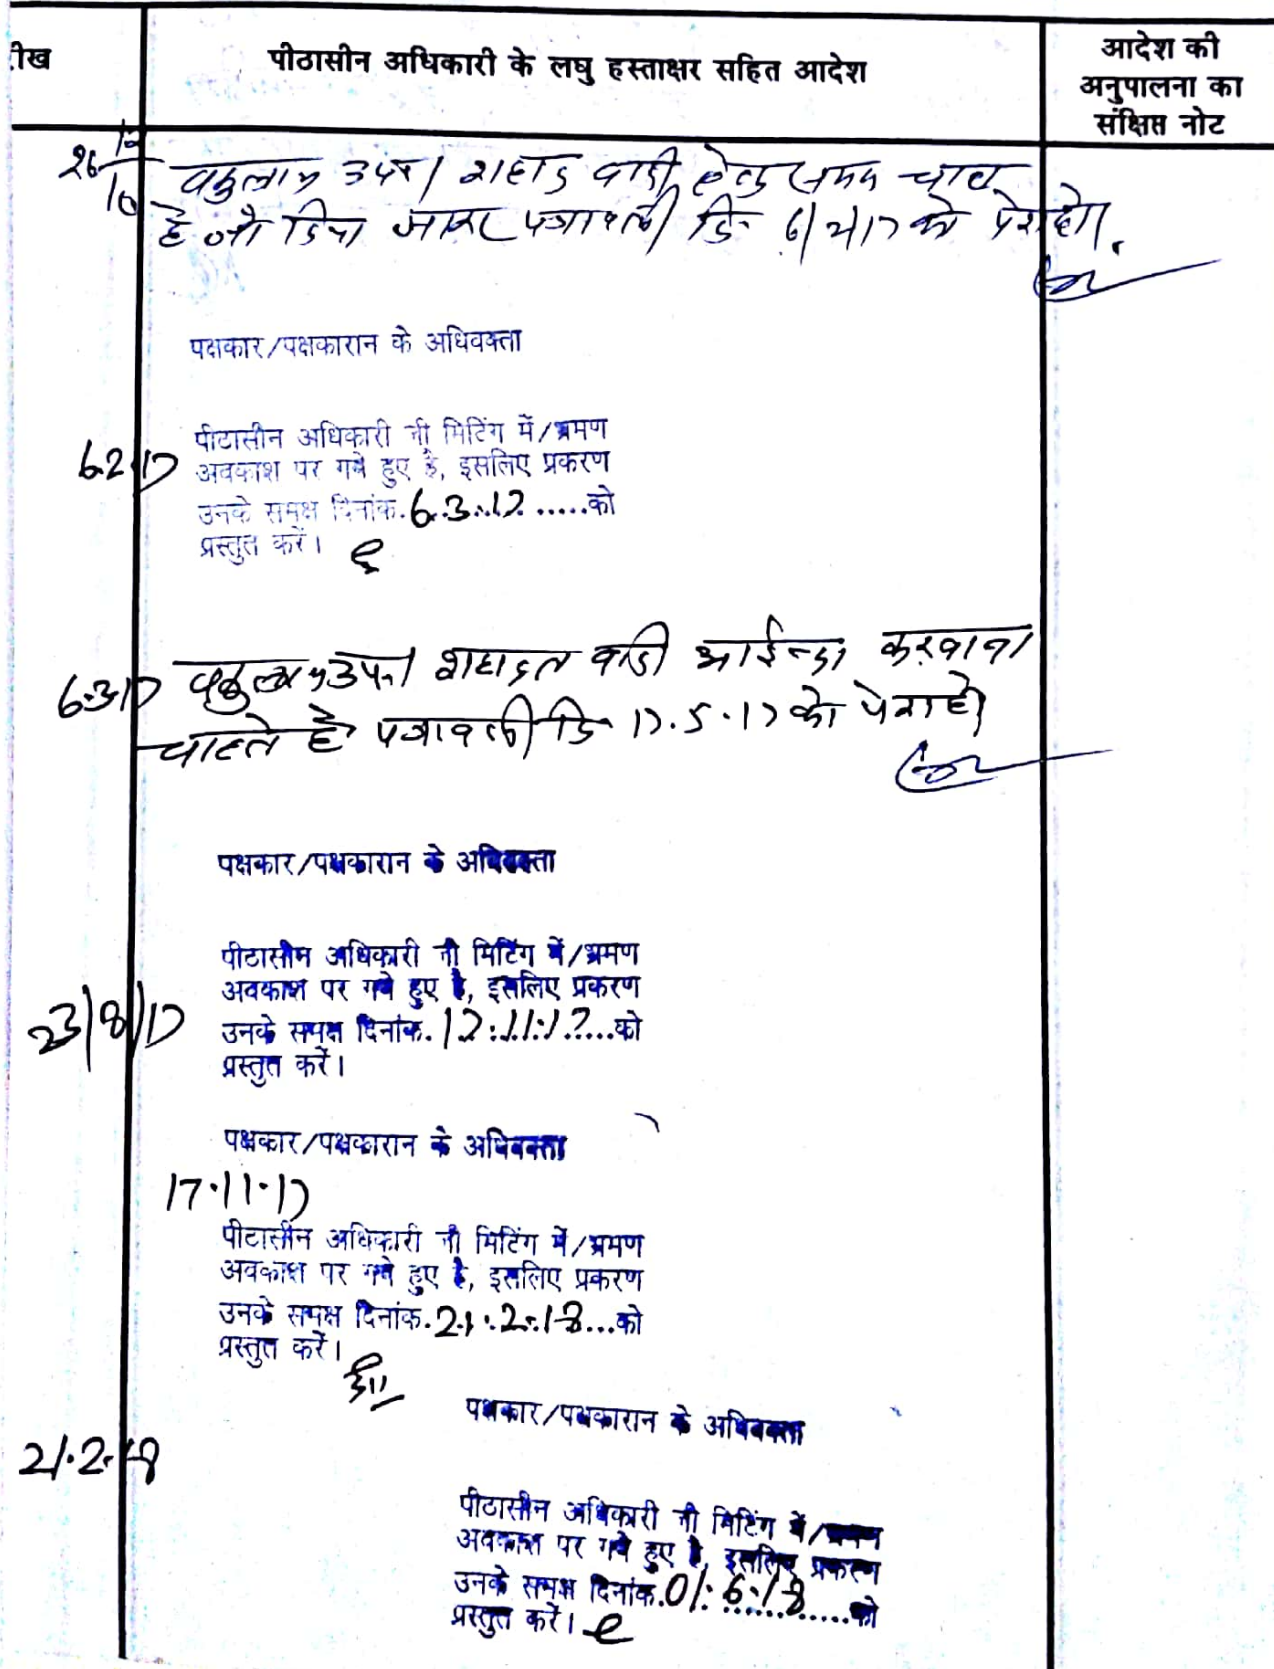 तारीख
पीठासीन अधिकारी के लघु हस्ताक्षर सहित आदेश
आदेश की
अनुपालना का
संक्षिप्त नोट
26/12/16
वकुलाय उप। शहाद वादी हेतु समय चाहा
है जो दिया जाकर पत्रावली दि 6/2/17 को पेश हो।
पक्षकार/पक्षकारान के अधिवक्ता
6.2.17
पीठासीन अधिकारी जी मिटिंग में/भ्रमण
अवकाश पर गये हुए है, इसलिए प्रकरण
उनके समक्ष दिनांक.6.3.17.....को
प्रस्तुत करें।
6.3.17
वकुलाय उप। शहादत वादी आईन्दा करवाना
चाहते है पत्रावली दि 17.5.17 को पेश हो
पक्षकार/पक्षकारान के अधिवक्ता
पीठासीन अधिकारी जी मिटिंग में/भ्रमण
अवकाश पर गये हुए है, इसलिए प्रकरण
23/8/17
उनके समक्ष दिनांक.17.11.17...को
प्रस्तुत करें।
पक्षकार/पक्षकारान के अधिवक्ता
17.11.17
पीठासीन अधिकारी जी मिटिंग में/भ्रमण
अवकाश पर गये हुए है, इसलिए प्रकरण
उनके समक्ष दिनांक.21.2.18...को
प्रस्तुत करें।
पक्षकार/पक्षकारान के अधिवक्ता
21.2.18
पीठासीन अधिकारी जी मिटिंग में/भ्रमण
अवकाश पर गये हुए है, इसलिए प्रकरण
उनके समक्ष दिनांक.01.6.18....को
प्रस्तुत करें।